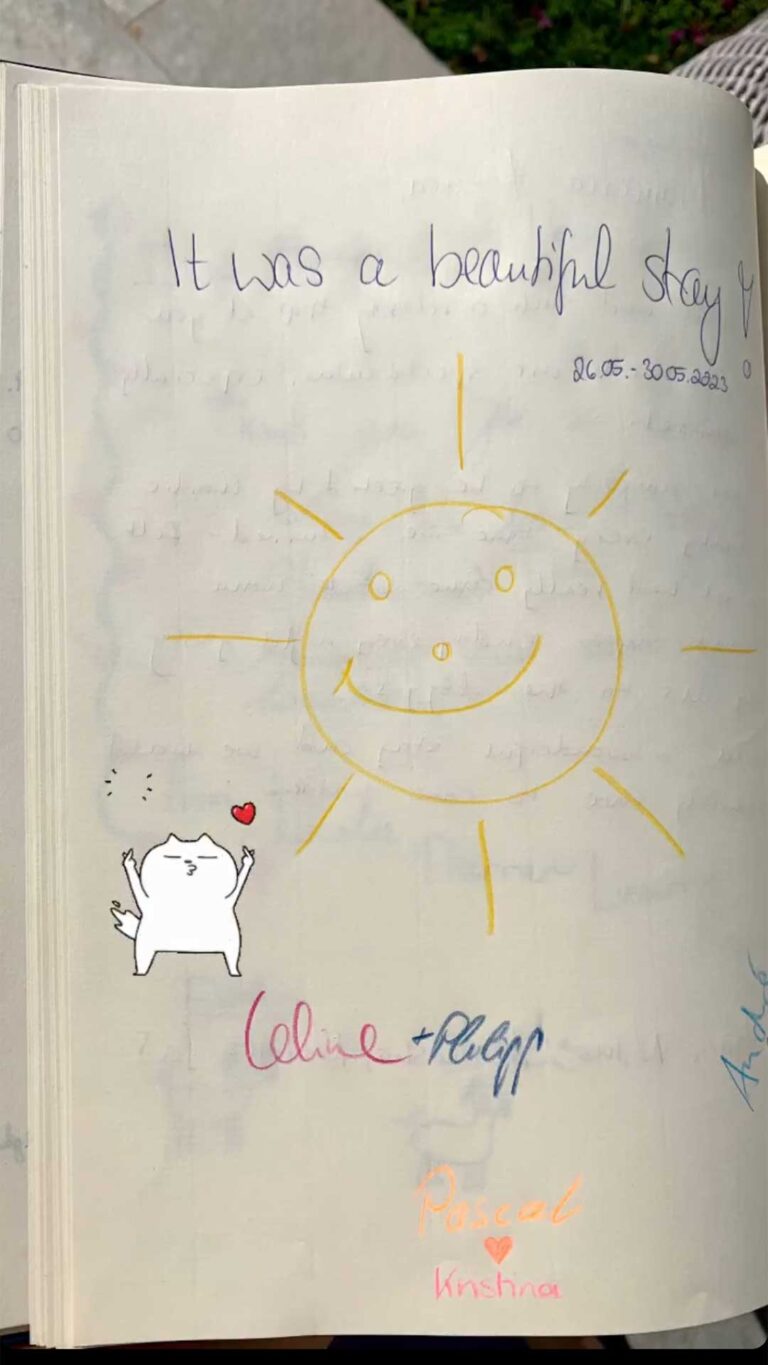 It was a beautiful stay!
26.05.-30.05.2023
Celine + Philipp
André
Pascal
Kristina